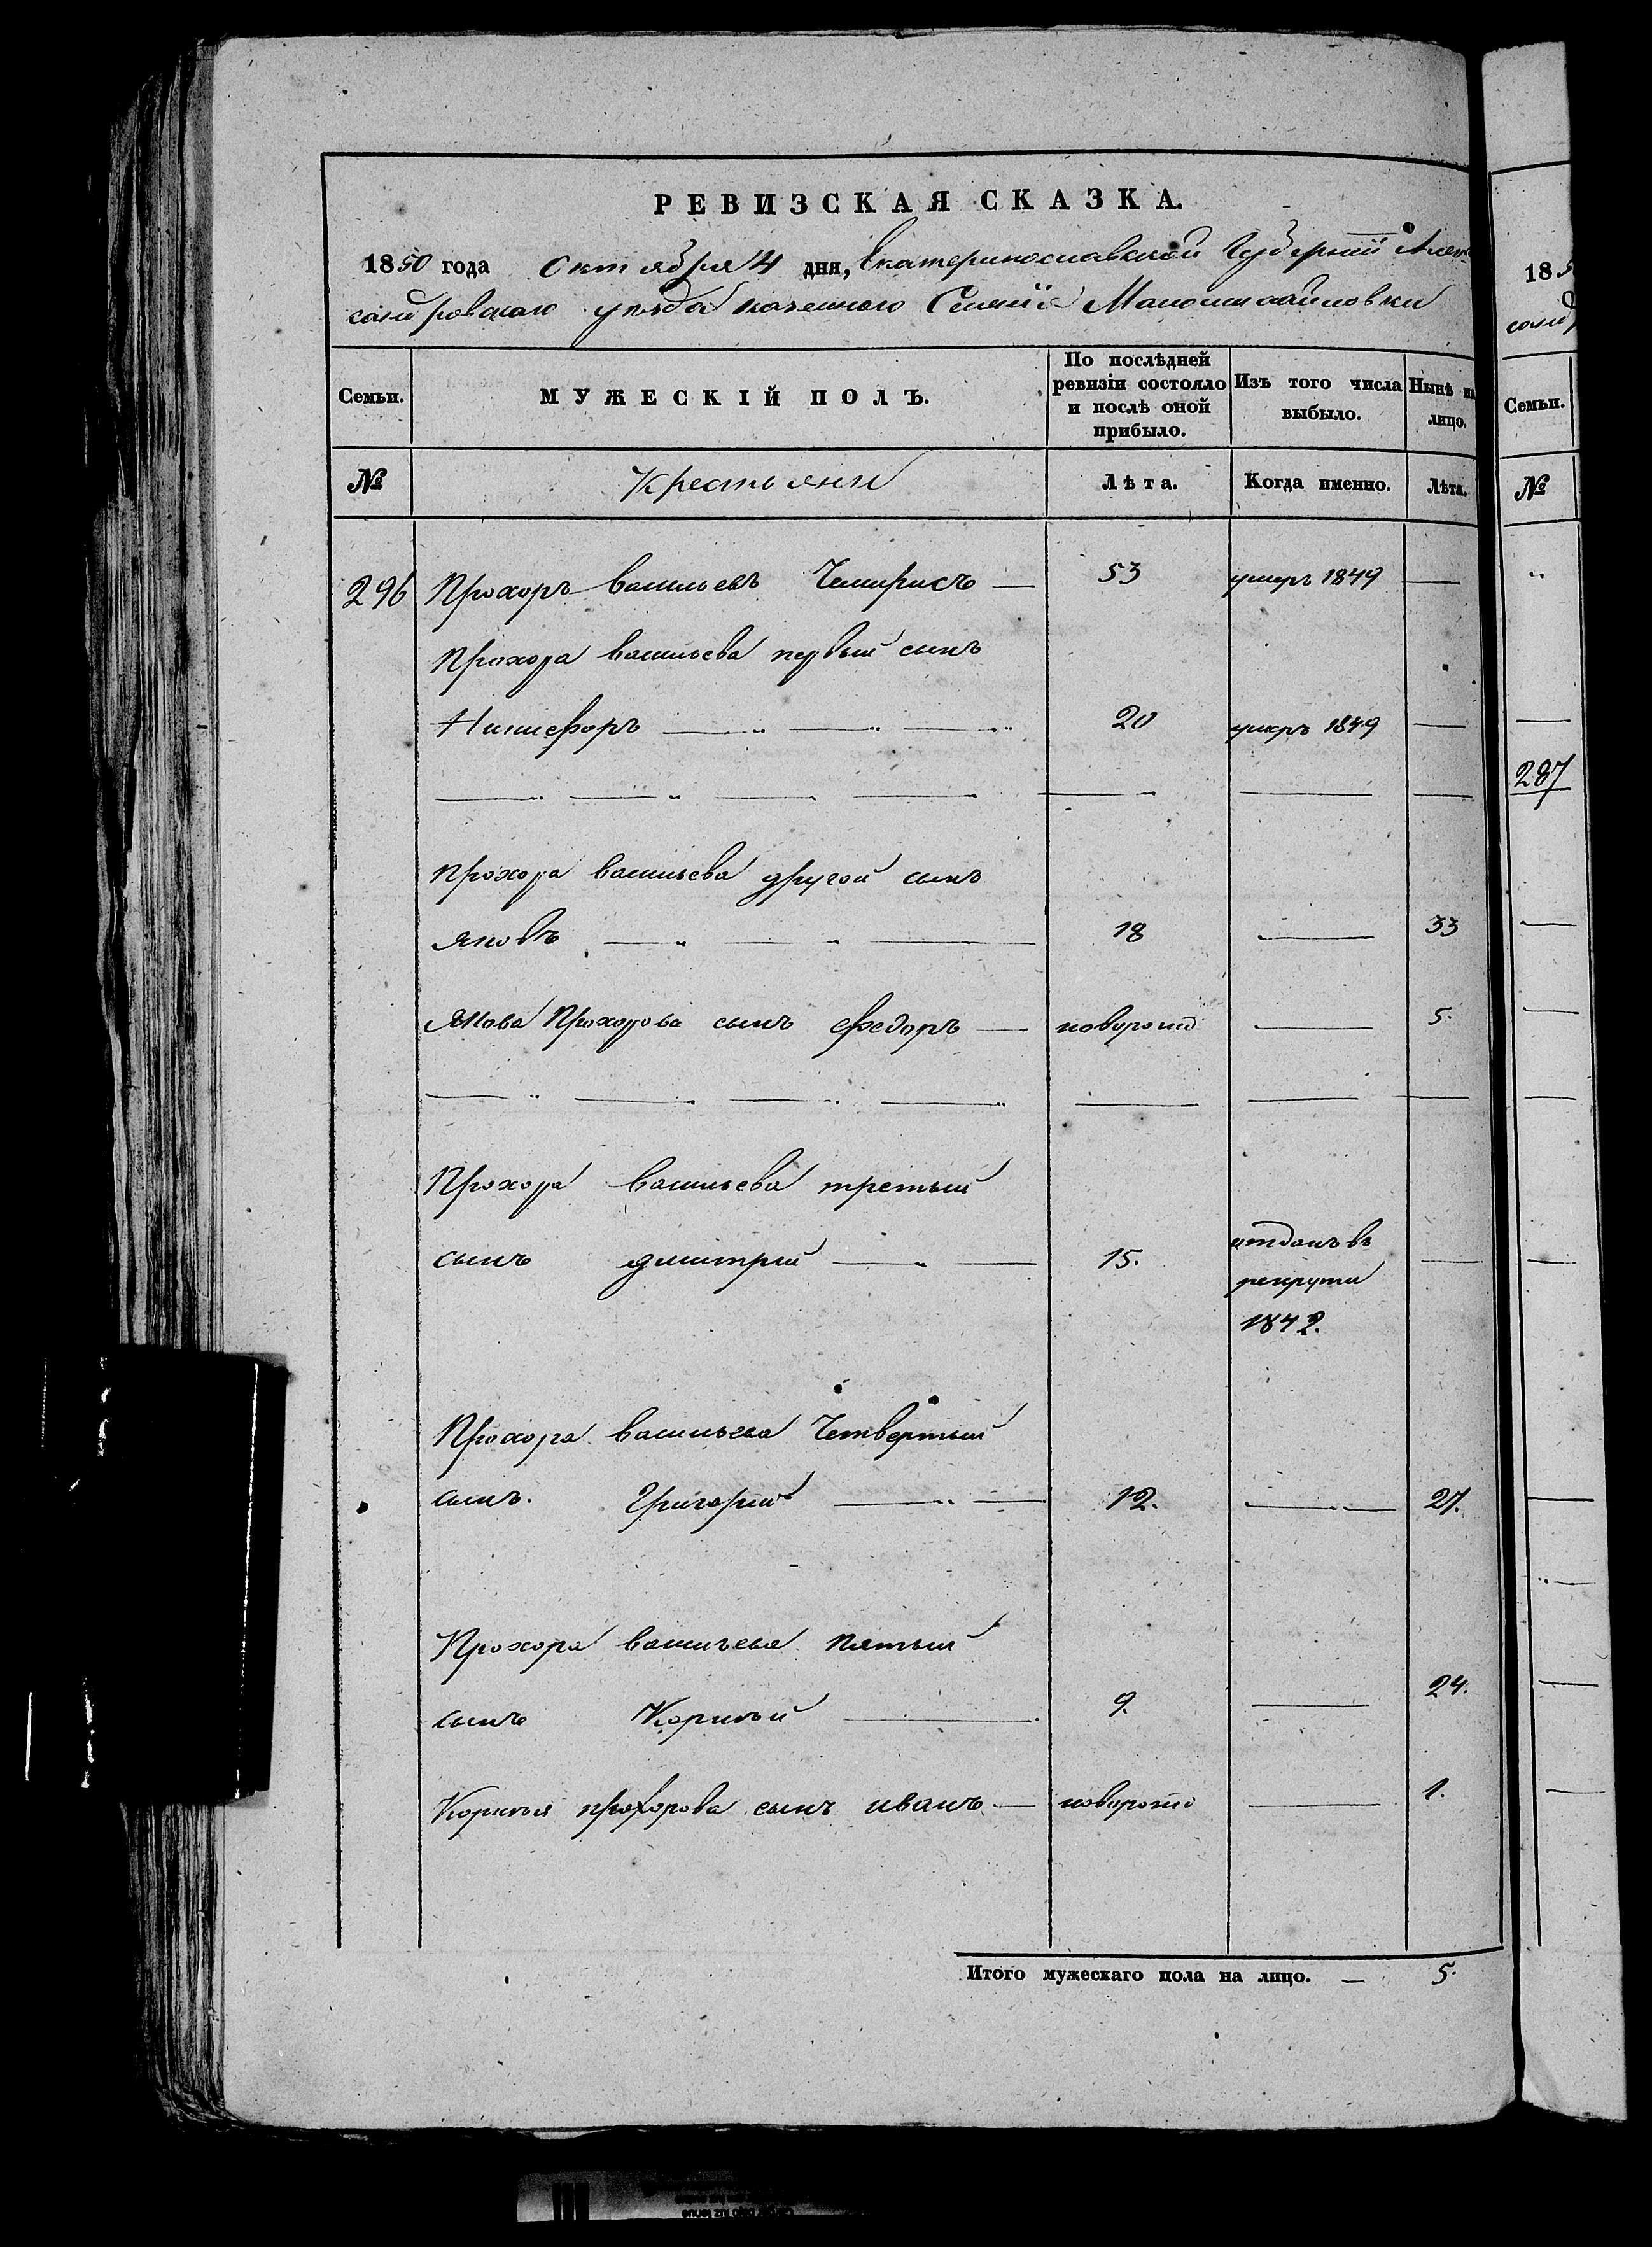 РЕВИЗСКАЯ СКАЗКА.
1850 года Октября 4 дня, Екатеринославской Губернїи Алек-
сандровскаго уезда казенного Селенїя Маломихайловки
Семьи.
МУЖЕСКІЙ ПОЛЪ.
По послѣдней ревизіи состояло и послѣ оной прибыло.
Изъ того числа выбыло.
Нынѣ на лицо.
№
Крестьяни
Лѣта.
Когда именно.
Лѣта.
296 Прохоръ васильевъ Чемирисъ — 53 умеръ 1849 —
Прохора васильева первый сынъ
Никифоръ — " — " — " 20 умеръ 1849 —
Прохора васильева другой сынъ
яковъ — " — " — 18 — 33
Якова Прохорова сынъ федоръ — новорожд — 5.
Прохора васильева третьий
сынъ дмитрий — " — 15. отданъ въ —
рекрути
1842.
Прохора васильева Четвертый
сынъ. Григорий — " — 12. — 27.
Прохора васильева пятый
сынъ Корнѣй — 9. — 24.
Корнѣя прохорова сынъ иванъ — новорожд — 1.
Итого мужескаго пола на лицо. — 5.
185
сонд
Семьи.
№
287